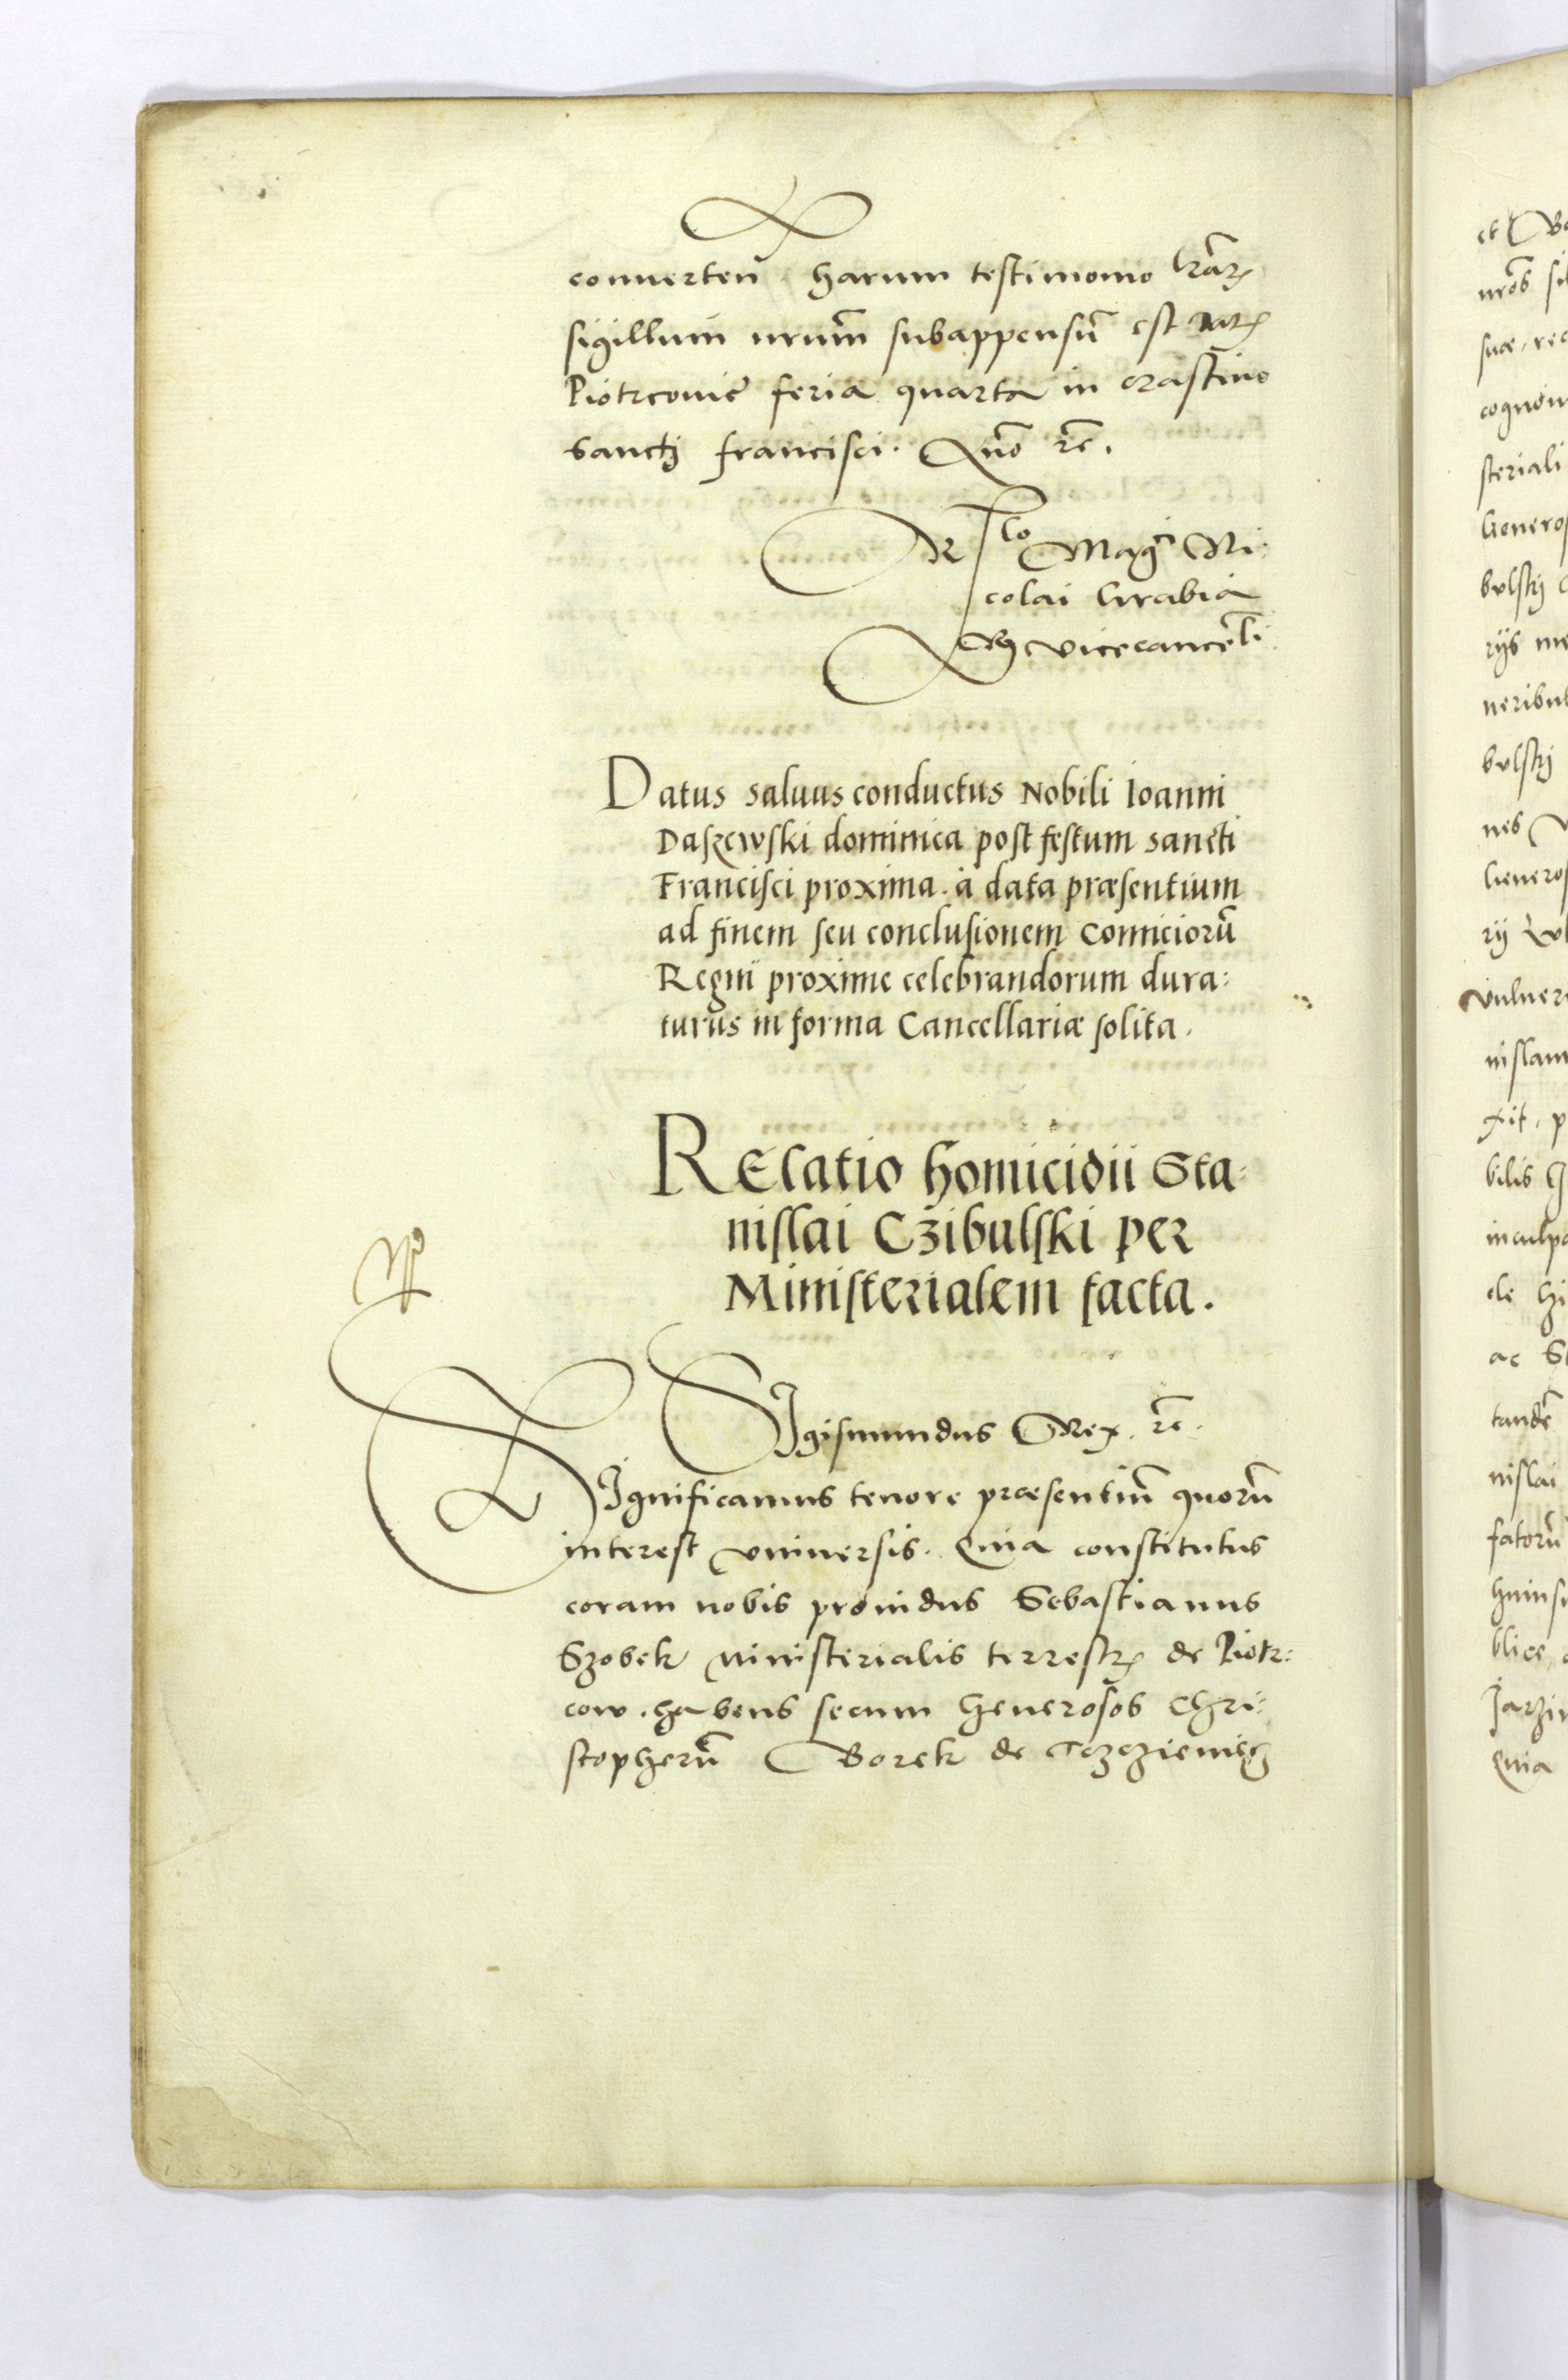 conuerten harum testimonio lrārꝫ
sigillum nrum̄ subappensū est Datꝫ
Piotrcouie feria quarta in crastino
Sancti Francisci. Quō rē.
Rlo Magci Ni:
colai Grabia
R vicecancelli.
Datus saluus conductus Nobili Ioanni
Daszewski dominica post festum sancti
Francisci proxima. à data præsentium
ad finem seu conclusionem Comiciorū
Regni proxime celebrandorum dura:
turus in forma Cancellariæ solita.
Relatio homicidii Sta:
nislai Czibulski per
Ministerialem facta.
Sigismundus Rex. rē.
Significamus tenore præsentiū quorū
interest vniuersis. Quia constitutus
coram nobis prouidus Sebastianus
Szobek ministerialis terrestrꝫ de Piotr:
cow. habens secum Generosos Chri:
stopherū Borek de
et
nrōs
suæ, rec
cognom
steriali
Generos
bulski
rijs me
neribus
bulski
nes
Generos
rij
vulner
nislam
xit, p
bilis
inculpa
de hi
ac St
tandē
nislai
fatorū
huiusm
blice
Quia